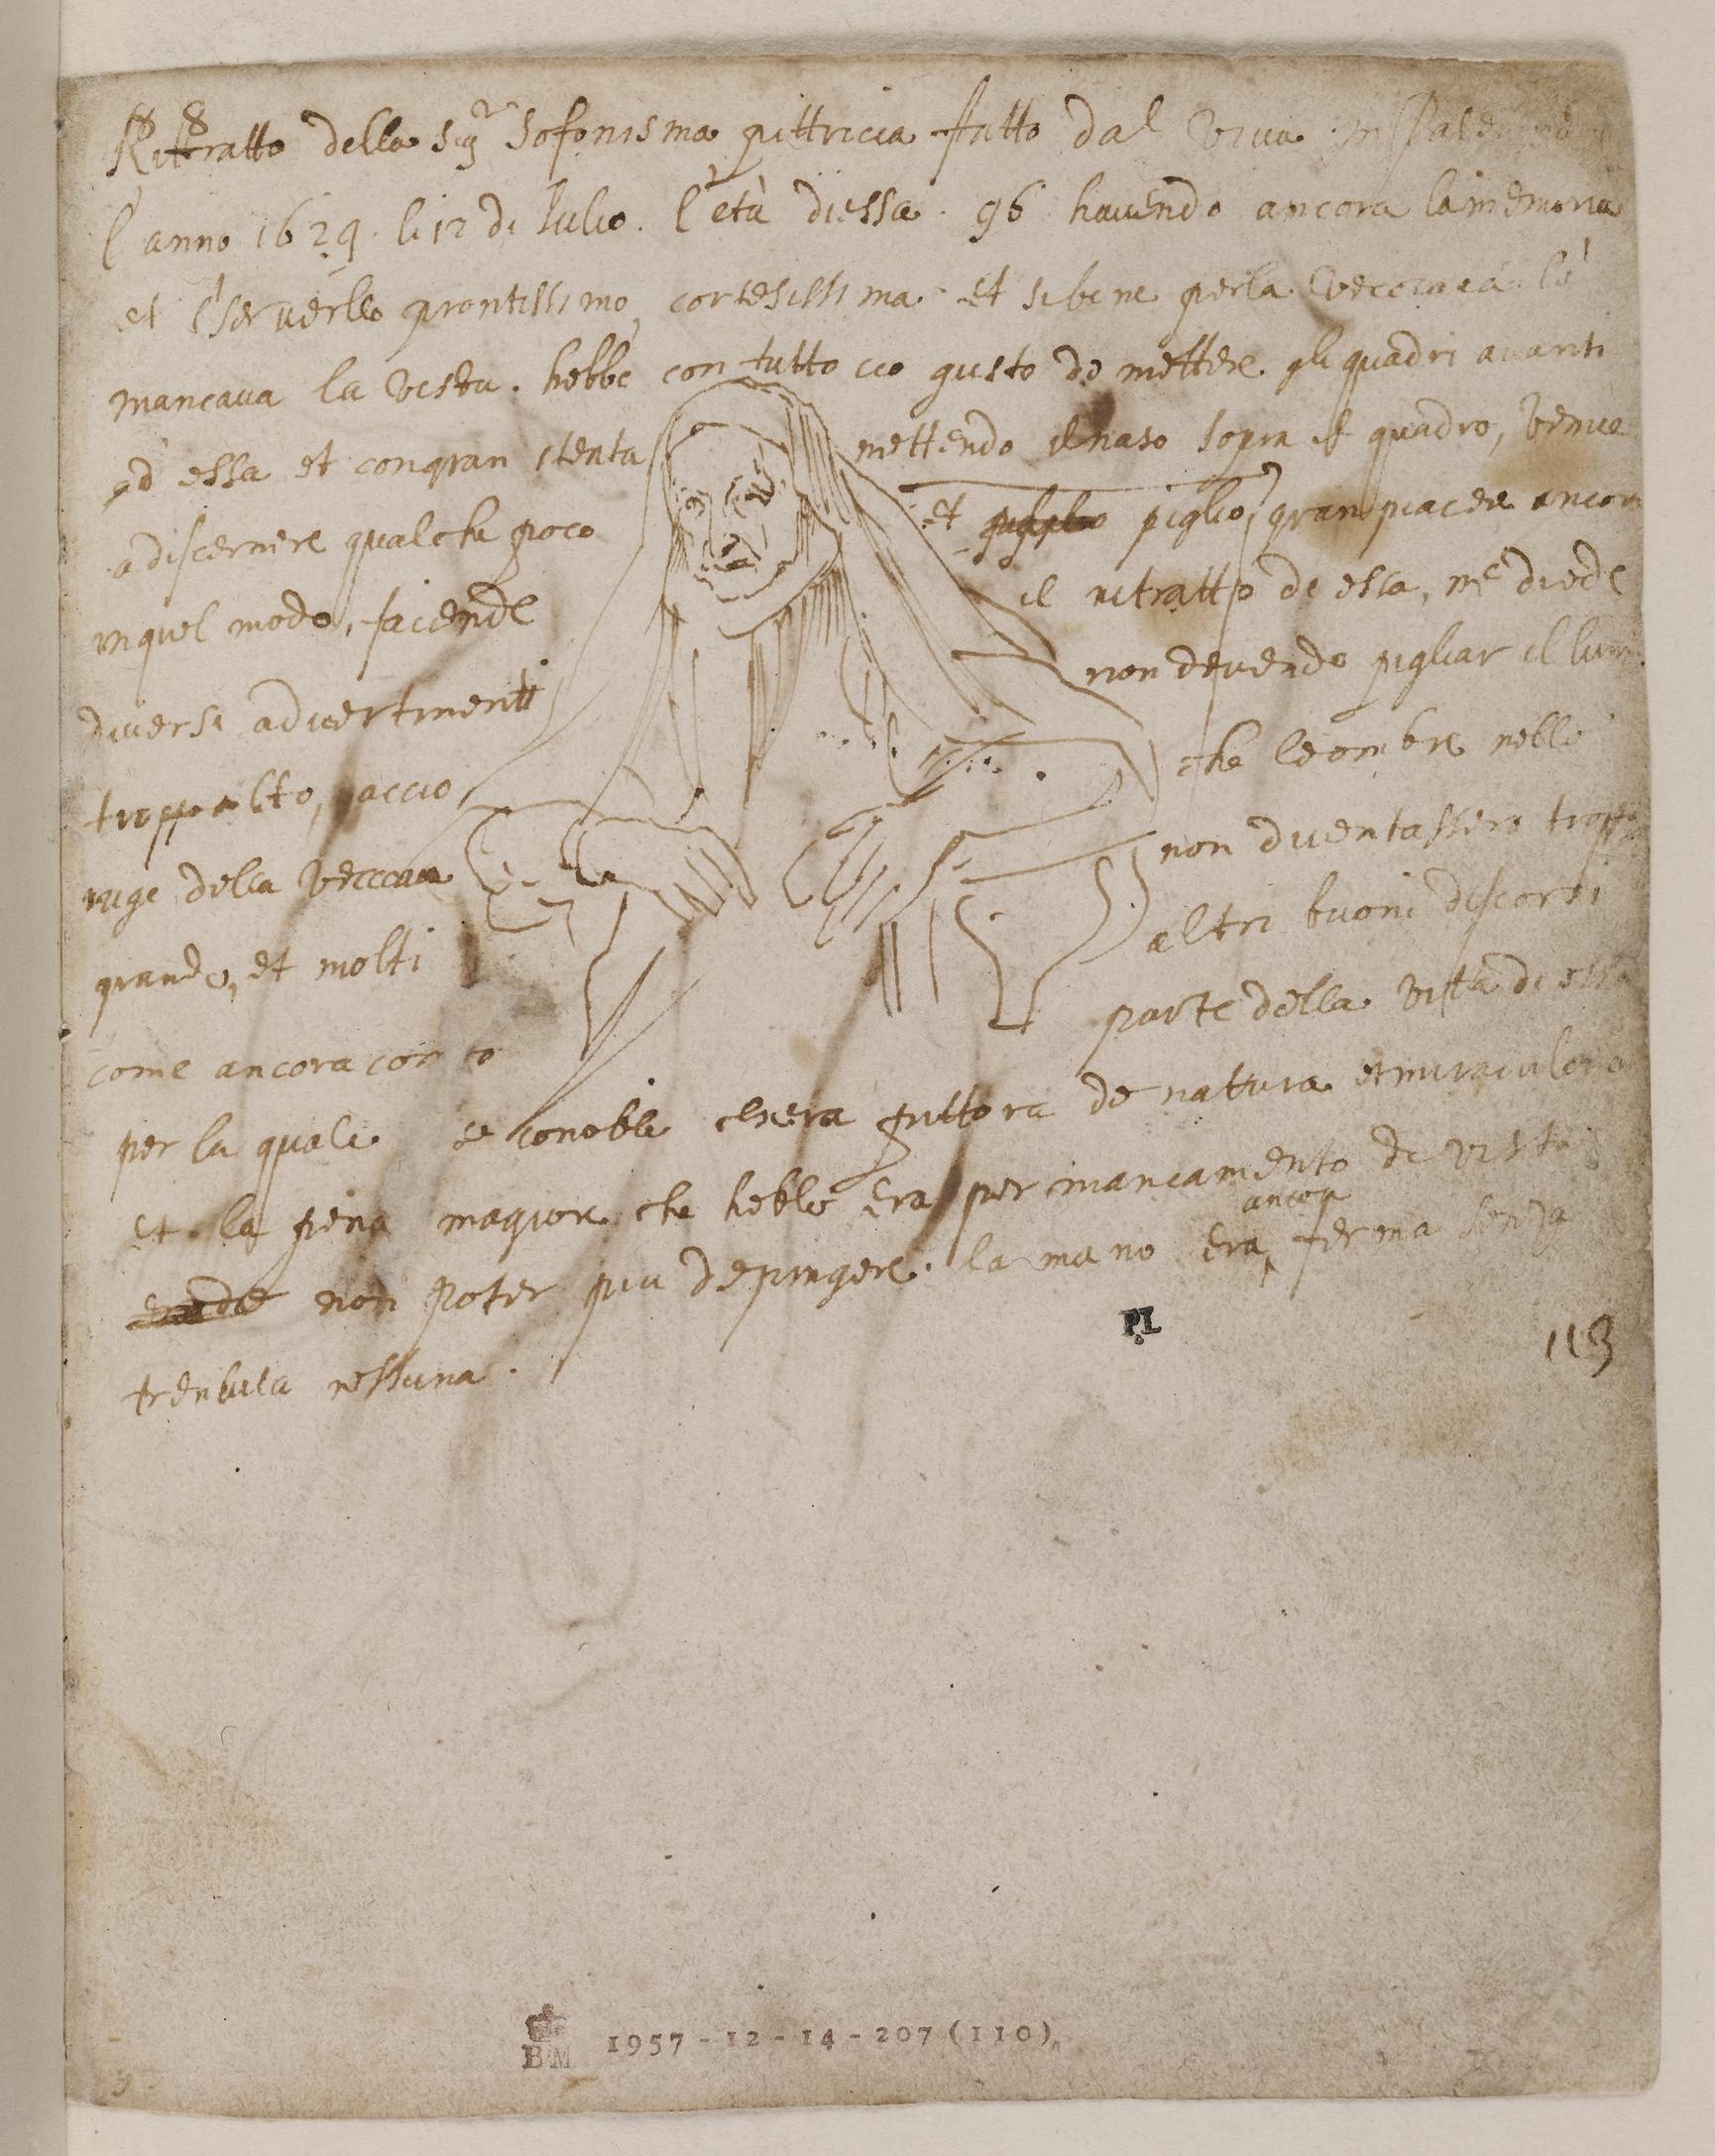 Rittratto della Sigr Sofonisma pittricia fatto dal vivo in Palermo
l'anno 1629 li 12 di Julio. l'età di essa 96 havendo ancora la memoria
et il serverllo prontissimo, cortesissima et sebene per la vecciaia le
mancava la vista. hebbe con tutto cio gusto de mettere gli quadri avanti
ad essa et con gran stenta mettendo il naso sopra il quadro, venne
a discernere qualche poco et piglio gran piacere ancora
in quel modo, facende il ritratto de essa, me diede
diversi advertimenti non devendo pigliar il lume
troppo alto, accio che le ombre nelle
ruge della vecciaia non diventassero troppo
grande, et molti altri buoni discorsi
come ancora conto parte della vita di essa
per la quale se conobbe chera pittora de natura et miraculosa
et la pena magiore che hebbe era per mancamento di vista
non poter piu depingere. la mano era ancora ferma senza
trembula nessuna.
P.L
113
BM 1957-12-14-207(110)